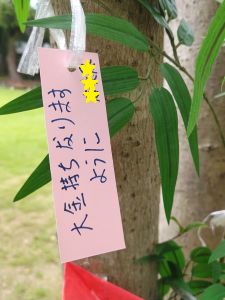 大金持ちなります
ように